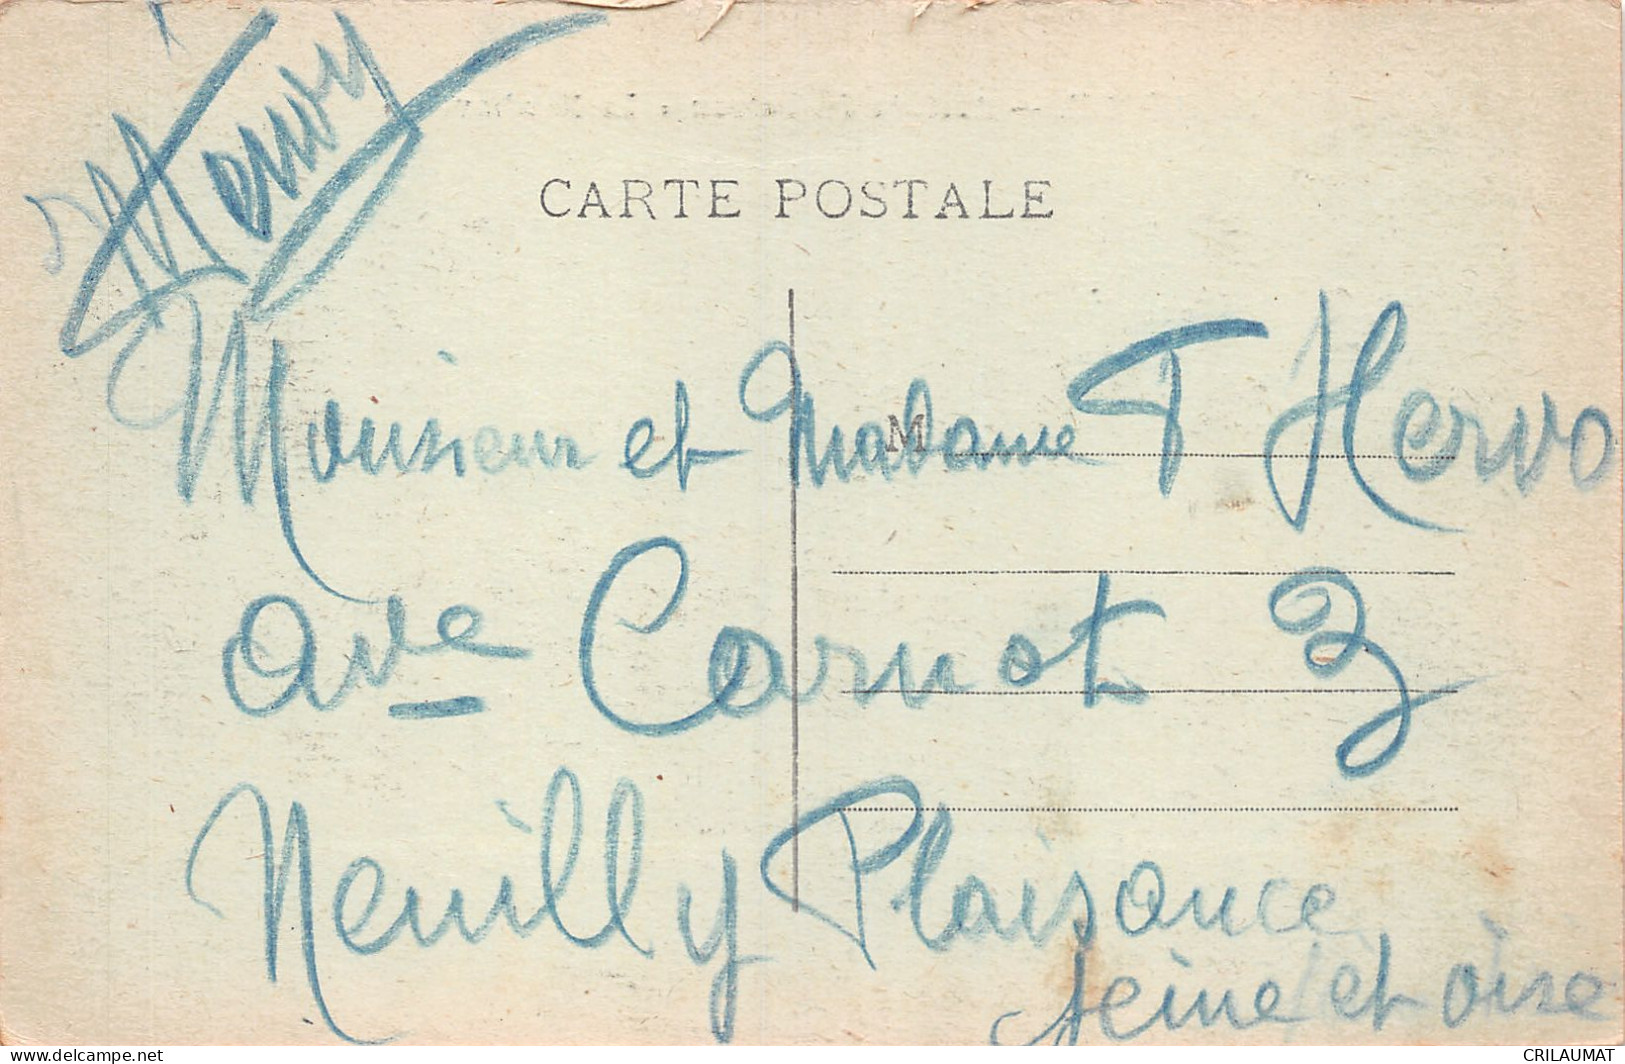 CARTE POSTALE
Monsieur et Madame T Hervo
M
Ave Carnot 3
Neuilly Plaisance
Seine et oise
CRILAUMAT